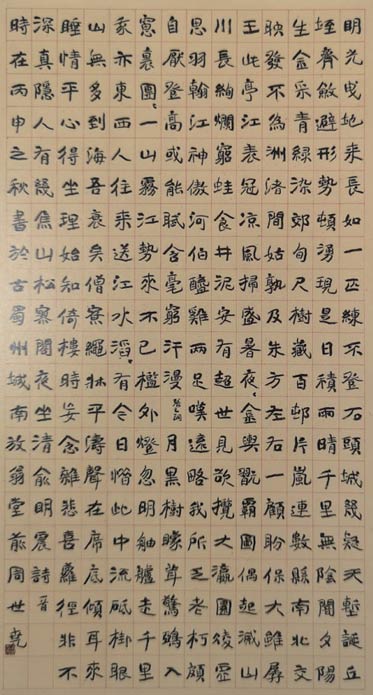 明光曳地来長如一匹練不登石頭城幾疑天塹誕丘
垤齊斂避形勢頓湧現是日積雨晴千里無陰間夕陽
生金采青綠染郊甸尺樹藏百邨片嵐連數縣南北交
映發不為洲渚間姑孰及朱方左右一顧盼保大雖孱
王此亭江表冠涼風掃盛暑夜金輿翫霸圖偶起滅山
川長絢爛窮蛙食井泥安有超世見欲攬大瀛圓後靈
思羽翰江神傲河伯醯雞兩足嘆遠略我所乏老朽頗
自厭登高或能賦含毫窮汗漫月黑樹矇聳驚鴉入
窻裏團一山霧江勢來不已檻外燈忽明舳艫走千里
豪亦東西人往来送江水滔有今日憯此中流砥柳眼
山無多到海吾衰矣僧寮繩牀平濤聲在席底傾耳來
睡情平心得坐理始知倚樓時妄念雜悲喜羅徑非不
深真隱人有幾焦山松寥閣夜坐清俞明震詩
時在丙申之秋書於古蜀州城南放翁堂前周世